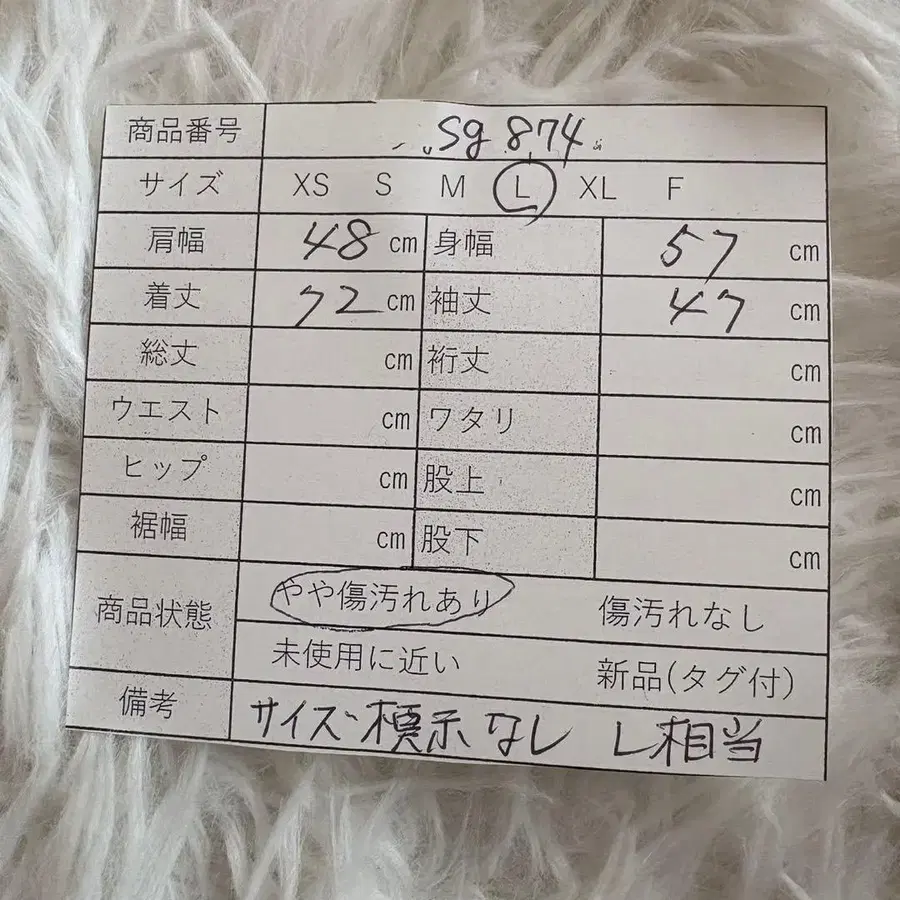 商品番号 sg 874
サイズ XS S M L XL F
肩幅 48 cm 身幅 57 cm
着丈 72 cm 袖丈 47 cm
総丈 cm 裄丈 cm
ウエスト cm ワタリ cm
ヒップ cm 股上 cm
裾幅 cm 股下 cm
商品状態 やや傷汚れあり 傷汚れなし
未使用に近い 新品(タグ付)
備考 サイズ標示なし L相当